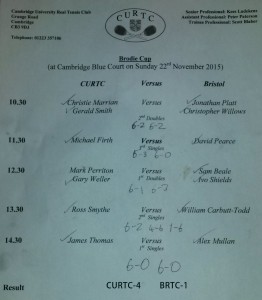 Cambridge University Real Tennis Club
Grange Road
Cambridge
CB3 9DJ
Telephone: 01223 357106
CURTC
Senior Professional: Kees Ludekens
Assistant Professional: Peter Paterson
Trainee Professional: Scott Blaber
Brodie Cup
(at Cambridge Blue Court on Sunday 22nd November 2015)
CURTC Versus Bristol
10.30 Christie Marrian Versus Jonathan Platt
Gerald Smith Christopher Willows
2nd Doubles
6-2 6-2
11.30 Michael Firth Versus David Pearce
3rd Singles
6-3 6-0
12.30 Mark Perriton Versus Sam Beale
Gary Weller 1st Doubles Avo Shields
6-1 6-2
13.30 Ross Smythe Versus William Carbutt-Todd
2nd Singles
6-2 4-6 1-6
14.30 James Thomas Versus Alex Mullan
1st Singles
6-0 6-0
Result CURTC-4 BRTC-1